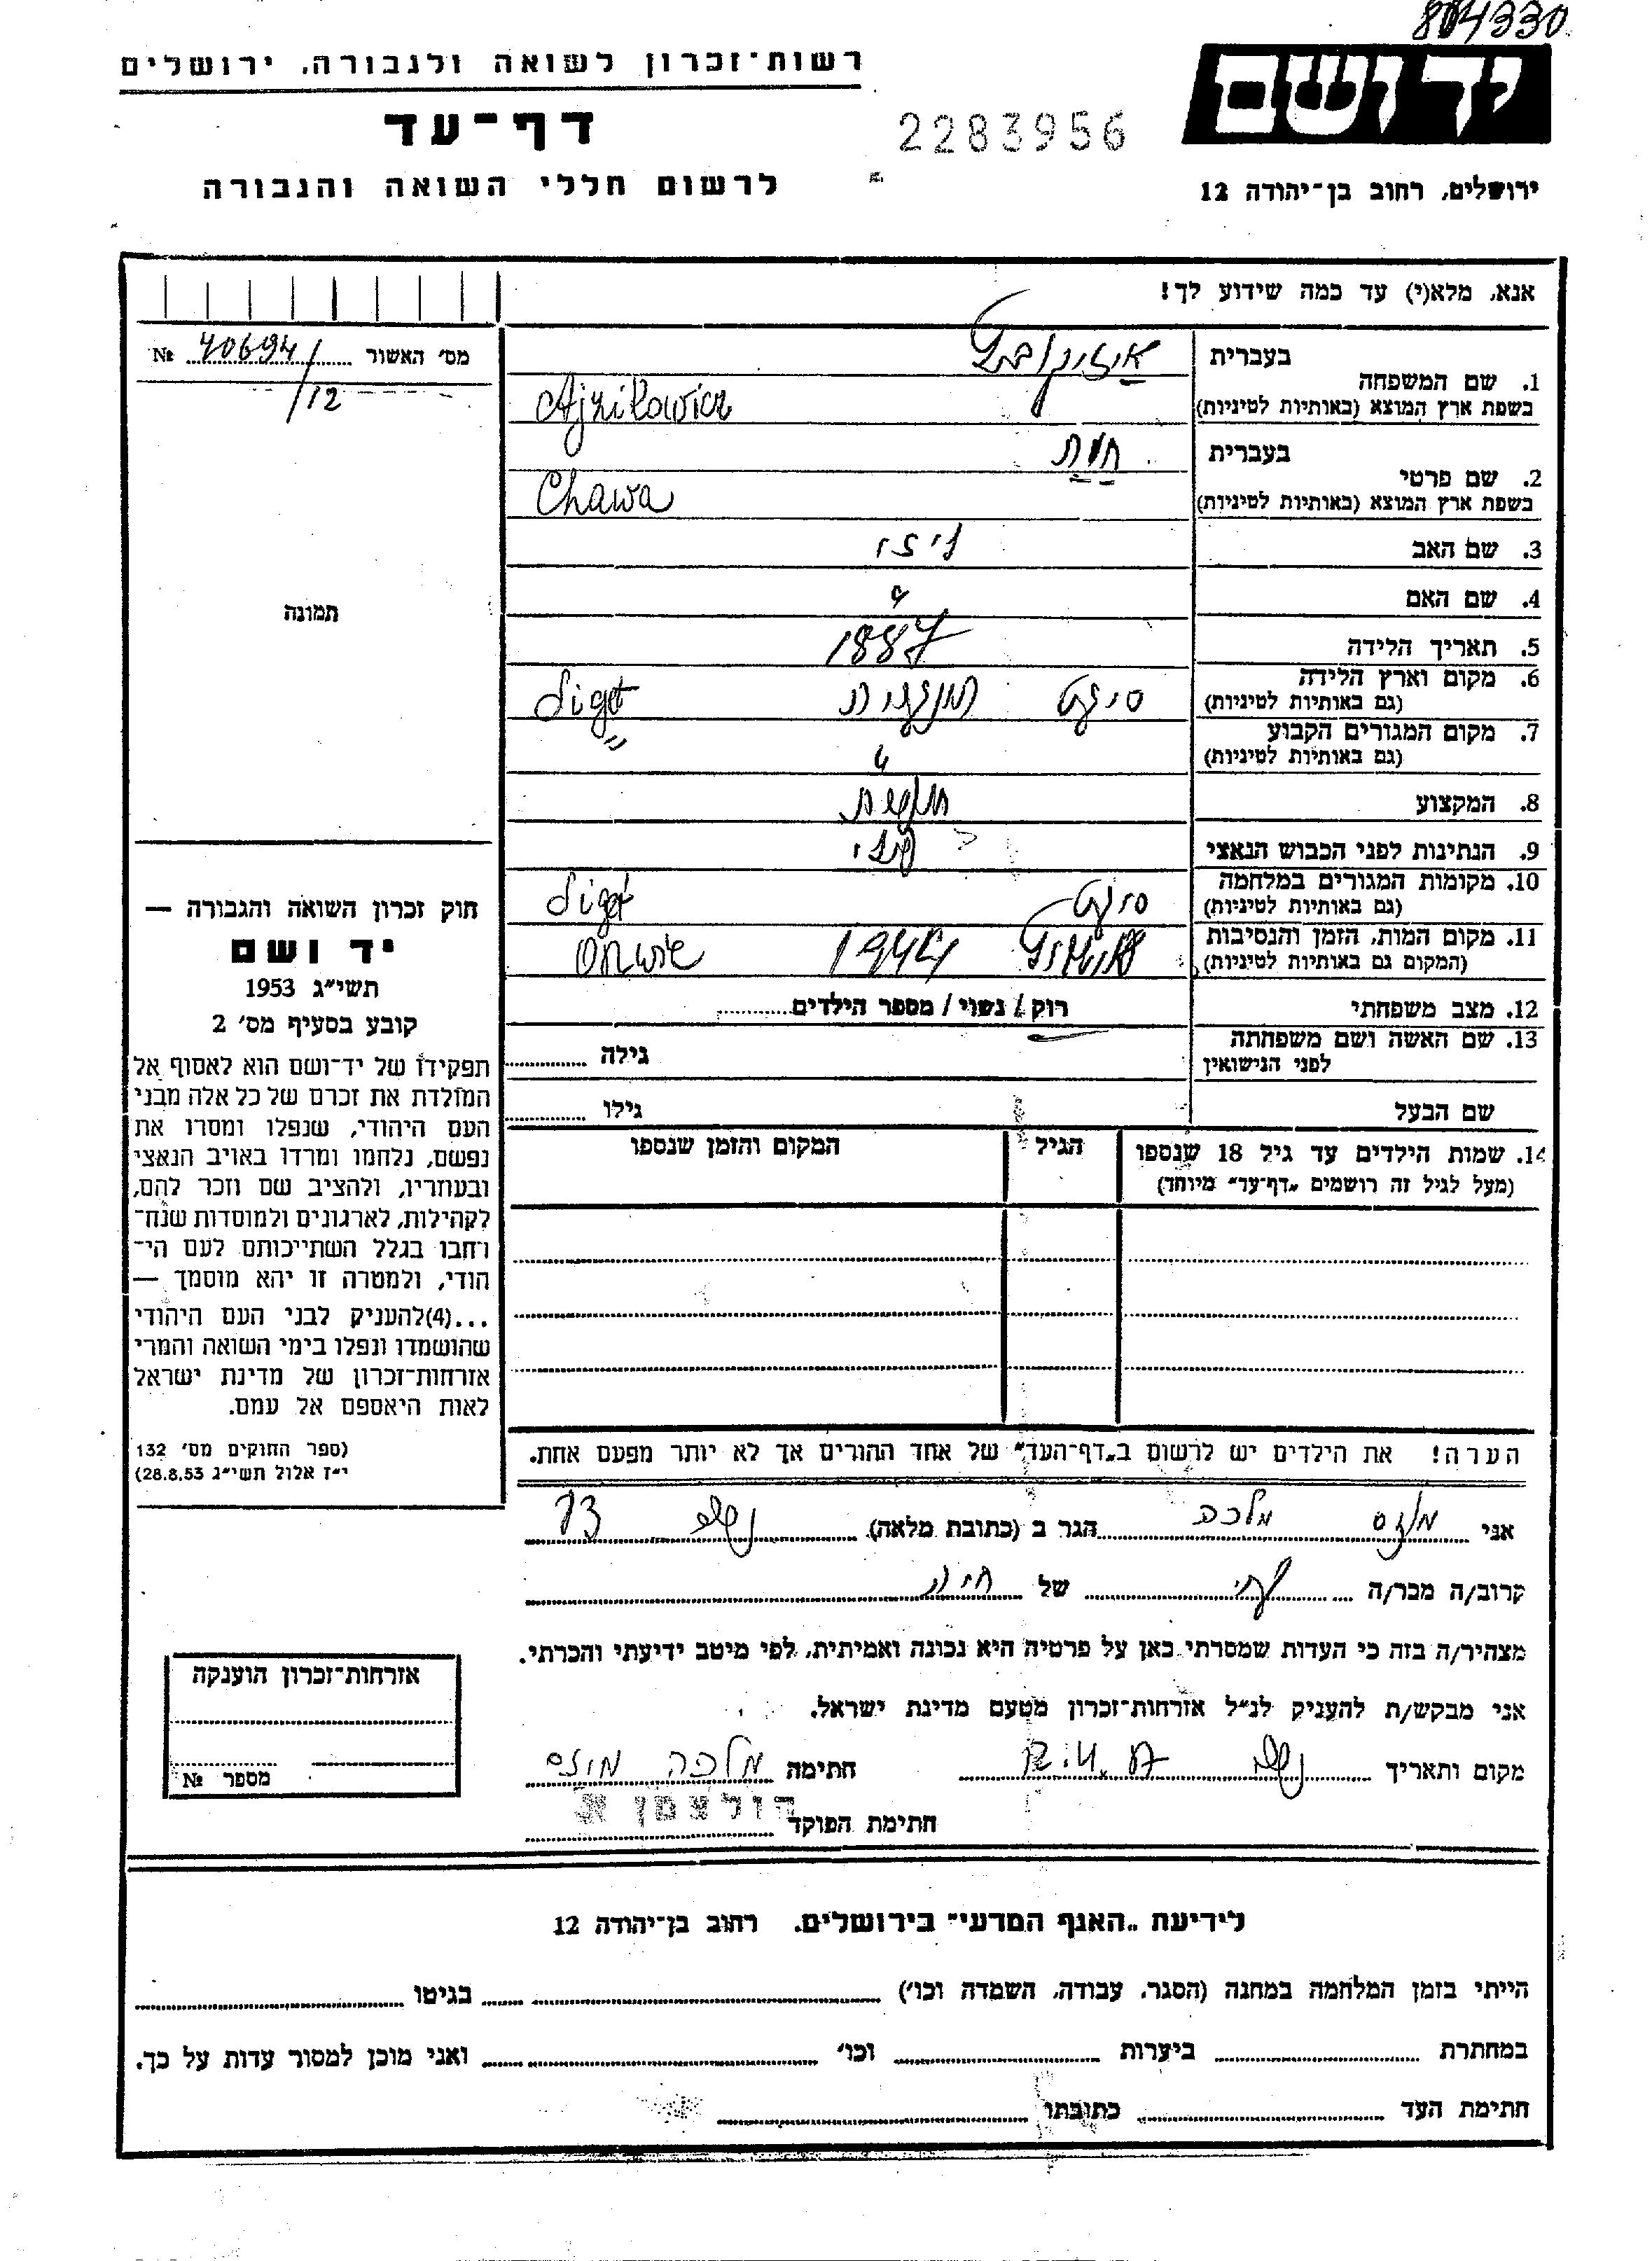 804330
יד ושם
רשות־זכרון לשואה ולגבורה, ירושלים
דף־עד
2283956
לרשום חללי השואה והגבורה
ירושלים, רחוב בן־יהודה 12
אנא, מלא(י) עד כמה שידוע לך!
מס׳ האשור 40694/12 №
תמונה
1. שם המשפחה
בעברית
בשפת ארץ המוצא (באותיות לטיניות) Ajzikowicz
2. שם פרטי
בעברית חוה
בשפת ארץ המוצא (באותיות לטיניות) Chawa
3. שם האב
4. שם האם
5. תאריך הלידה 1887
6. מקום וארץ הלידה סיגט הונגריה Siget
(גם באותיות לטיניות)
7. מקום המגורים הקבוע
(גם באותיות לטיניות)
8. המקצוע
9. הנתינות לפני הכבוש הנאצי
10. מקומות המגורים במלחמה סיגט Siget
(גם באותיות לטיניות)
11. מקום המות, הזמן והנסיבות 1944
(המקום גם באותיות לטיניות)
12. מצב משפחתי רוק / נשוי / מספר הילדים
13. שם האשה ושם משפחתה גילה
לפני הנישואין
שם הבעל גילו
14. שמות הילדים עד גיל 18 שנספו הגיל המקום והזמן שנספו
(מעל לגיל זה רושמים „דף־עד״ מיוחד)
הערה! את הילדים יש לרשום ב„דף־העד״ של אחד ההורים אך לא יותר מפעם אחת.
חוק זכרון השואה והגבורה —
יד ושם
תשי״ג 1953
קובע בסעיף מס׳ 2
תפקידו של יד־ושם הוא לאסוף אל
המולדת את זכרם של כל אלה מבני
העם היהודי, שנפלו ומסרו את
נפשם, נלחמו ומרדו באויב הנאצי
ובעוזריו, ולהציב שם וזכר להם,
לקהילות, לארגונים ולמוסדות שנח־
רחבו בגלל השתייכותם לעם הי־
הודי, ולמטרה זו יהא מוסמך —
...(4)להעניק לבני העם היהודי
שהושמדו ונפלו בימי השואה והמרי
אזרחות־זכרון של מדינת ישראל
לאות היאספם אל עמם.
(ספר החוקים מס׳ 132
י״ז אלול תשי״ג 28.8.53)
אני מוזס מלכה הגר ב (כתובת מלאה)
קרוב/ה מכר/ה של חיה
מצהיר/ה בזה כי העדות שמסרתי כאן על פרטיה היא נכונה ואמיתית, לפי מיטב ידיעתי והכרתי.
אני מבקש/ת להעניק לנ״ל אזרחות־זכרון מטעם מדינת ישראל.
מקום ותאריך חתימה מלכה מוזס
חתימת הפוקד הולצמן א
אזרחות־זכרון הוענקה
מספר №
לידיעת „האגף המדעי״ בירושלים, רחוב בן־יהודה 12
הייתי בזמן המלחמה במחנה (הסגר, עבודה, השמדה וכו׳) בגיטו
במחתרת ביערות וכו׳ ואני מוכן למסור עדות על כך.
חתימת העד כתובתו